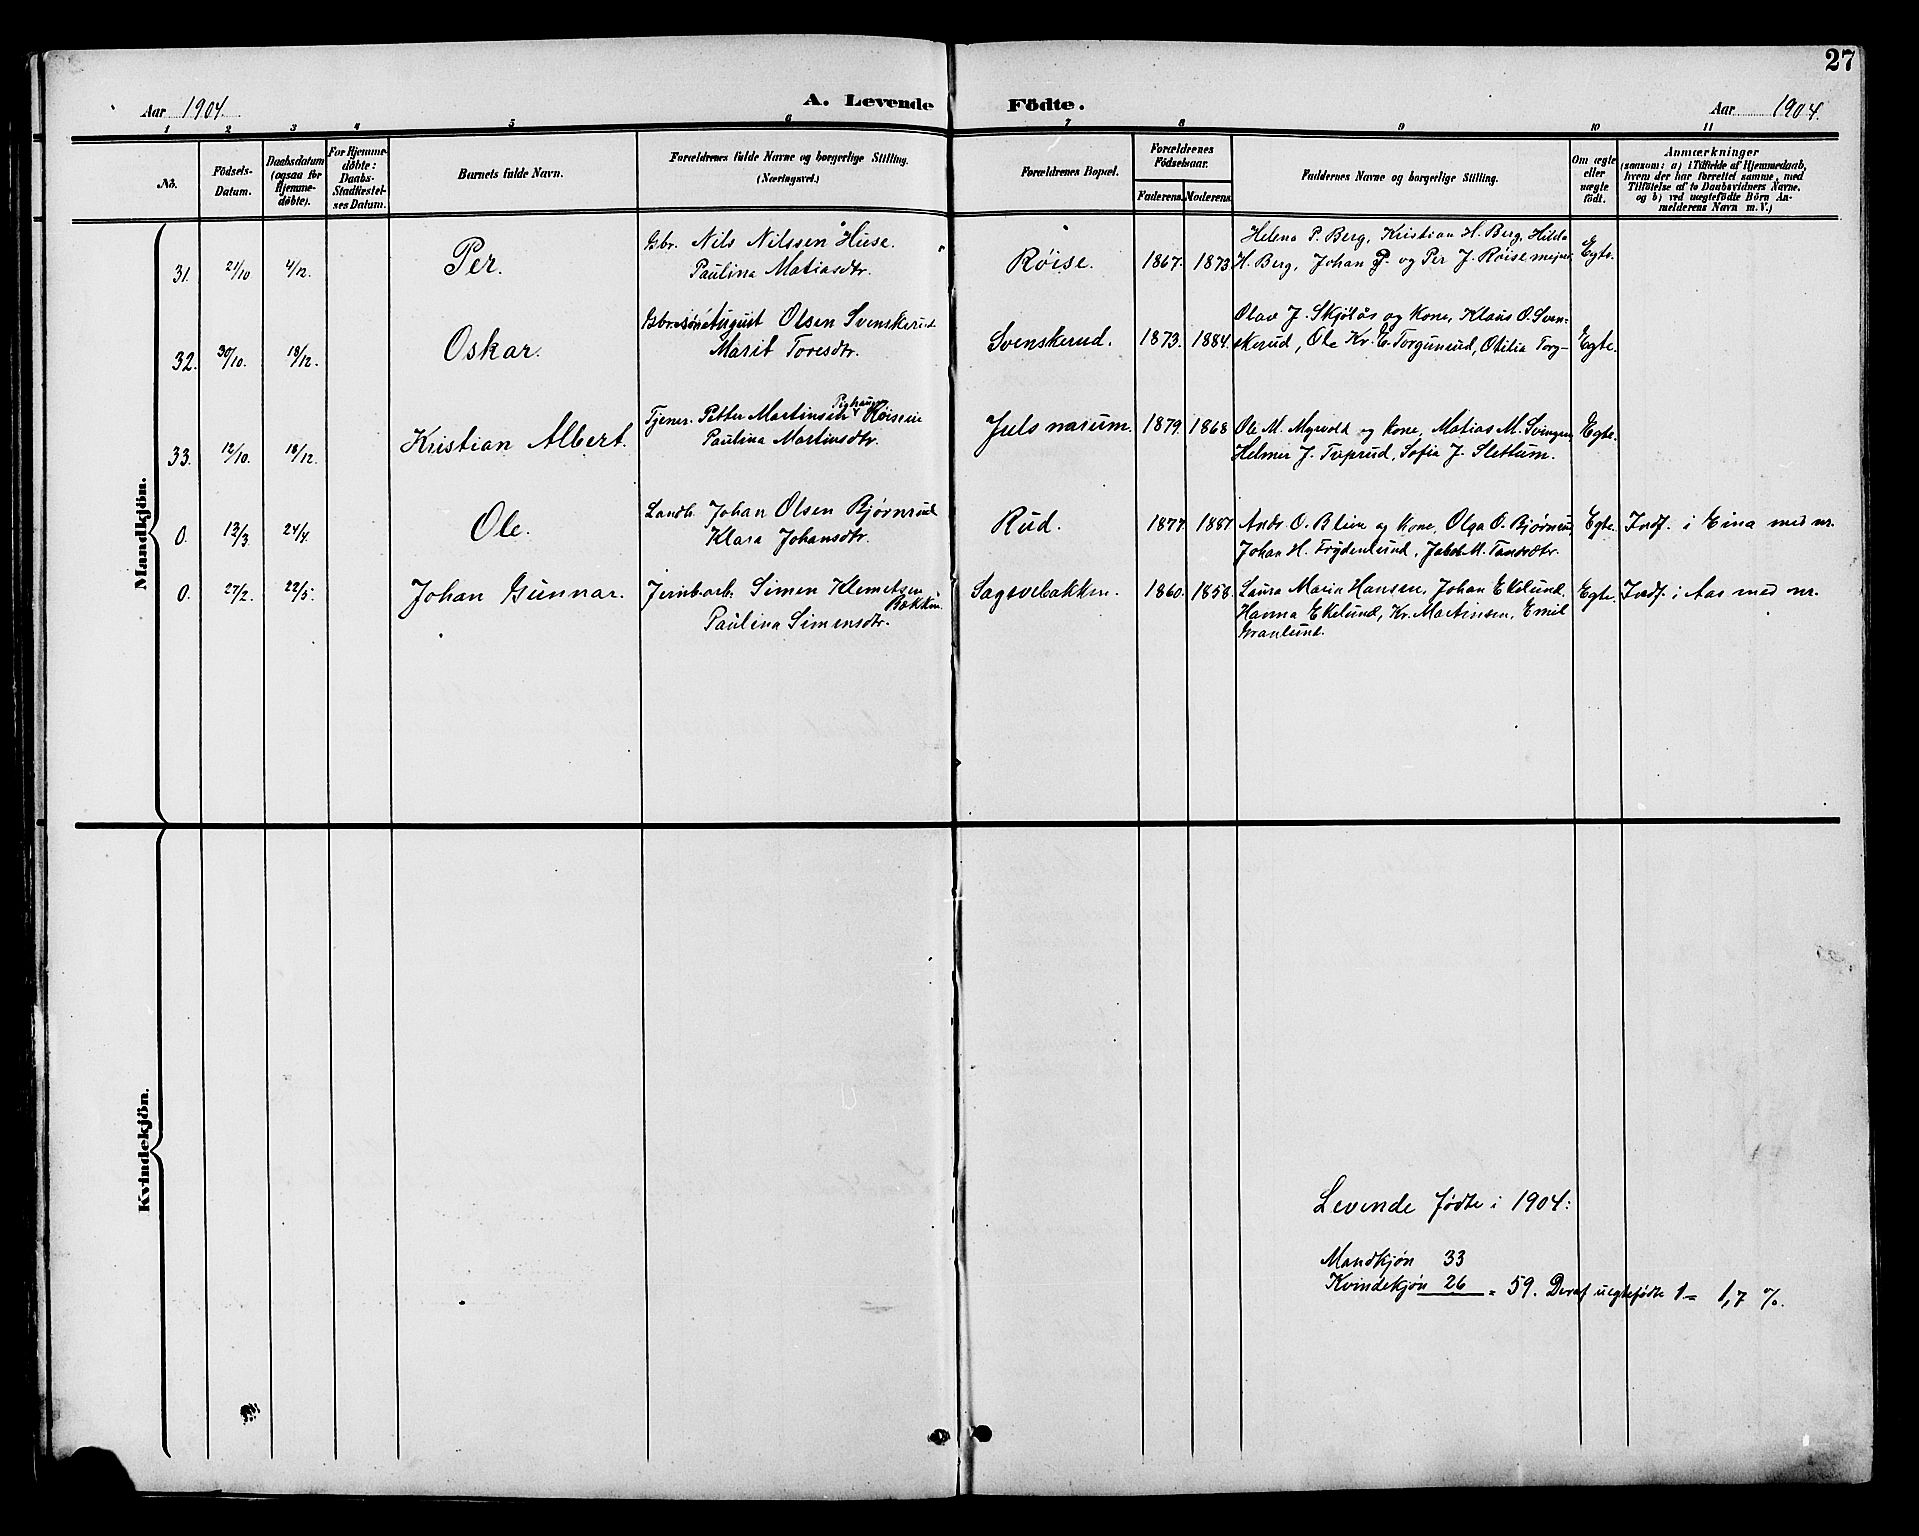 27
Aar 1904.
A. Levende Födte.
Aar 1904.
1 2 3 4 5 6 7 8 9 10 11
No.
Födsels-Datum.
Daabsdatum (ogsaa for Hjemme-döbte).
For Hjemme-döbte: Daabs-Stadfæstel-ses Datum.
Barnets fulde Navn.
Forældrenes fulde Navne og borgerlige Stilling.
(Næringsvei.)
Forældrenes Bopæl.
Forældrenes Födselsaar.
Faderens. Moderens.
Faddernes Navne og borgerlige Stilling.
Om ægte eller uægte født.
Anmærkninger
(saasom: a) i Tilfælde af Hjemmedaab,
hvem der har forrettet samme, med
Tilføielse af to Daabsvidners Navne.
og b) ved uægtefödte Börn An-
melderens Navn m. V.)
Mandkjön.
31. 21/10 4/12. Per. Gbr. Nils Nilssen Huse.
Paulina Matiasdtr.
Röise. 1867. 1873
Helena P. Berg, Kristian H. Berg, Hilda
H. Berg, Johan P. og Per J. Röise
Egte.
32. 30/10. 18/12. Oskar. Gbr.sön August Olsen Svenskerud
Marit Toresdtr.
Svenskerud. 1873. 1884.
Olav J. Skjölås og Kone, Klaus O. Sven-
skerud, Ole Kr. E. Torgunrud, Otilia Torg-
Egte.
33. 12/10. 18/12. Kristian Albert. Tjener. Petter Martinsen Röisein
Paulina Martinsdtr.
Julsmarum. 1879. 1868
Ole M. Myrvold og Kone, Matias M. Svingen,
Helmer J. Tuprud, Sofie J. Slettum.
Egte.
0. 13/3. 24/4. Ole. Landh. Johan Olsen Bjørnrud
Klara Johansdtr.
Rud. 1877. 1881.
Andr. O. Blien og Kone, Olga O. Bjørnrud,
Johan H. Frydenlund,
Egte. Indf. i Eina med nr.
0. 27/2. 22/5. Johan Gunnar. Jernb.arb. Simen Klemetsen
Bakken.
Paulina Simensdtr.
Sagvebakken. 1860. 1858.
Laura Marie Hansen, Johan Ekelund,
Hanna Ekelund, Kr. Martinsen, Emil
Granlund.
Egte. Indf. i Aas med nr.
Kvindekjön.
Levende fødte i 1904:
Mandkjøn 33
Kvindekjøn 26 = 59. Deraf uegtefødte 1 = 1,7 %.